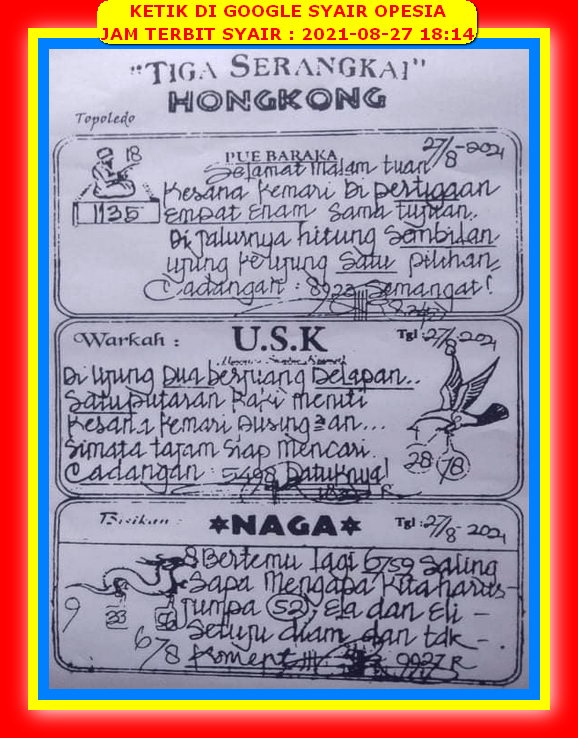 KETIK DI GOOGLE SYAIR OPESIA
JAM TERBIT SYAIR : 2021-08-27 18:14
"TIGA SERANGKAI"
HONGKONG
Topoledo
PUE BARAKA
27/8-2021
18
1135
Selamat Malam tuan
Kesana Kemari Di pertigaan
Empat Enam Sama tujuan..
Di Jalurnya hitung Sembilan
ujung keujung Satu pilihan
Cadangan : 8923 Semangat!
Warkah :
U.S.K
Tgl : 27/8-2021
Di Ujung Dua berjuang Delapan..
Satu putaran Kaki meniti
Kesana Kemari
Simata tajam Siap Mencari
Cadangan : 5498 Datuknya!
28 78
Bisikan :
*NAGA*
Tgl : 27/8-2021
8 Bertemu lagi 6759 Saling
Sapa Mengapa Kita harus-
jumpa 52, Ela dan Eli -
Setuju diam dan tdk -
Koment
9 33
6/8